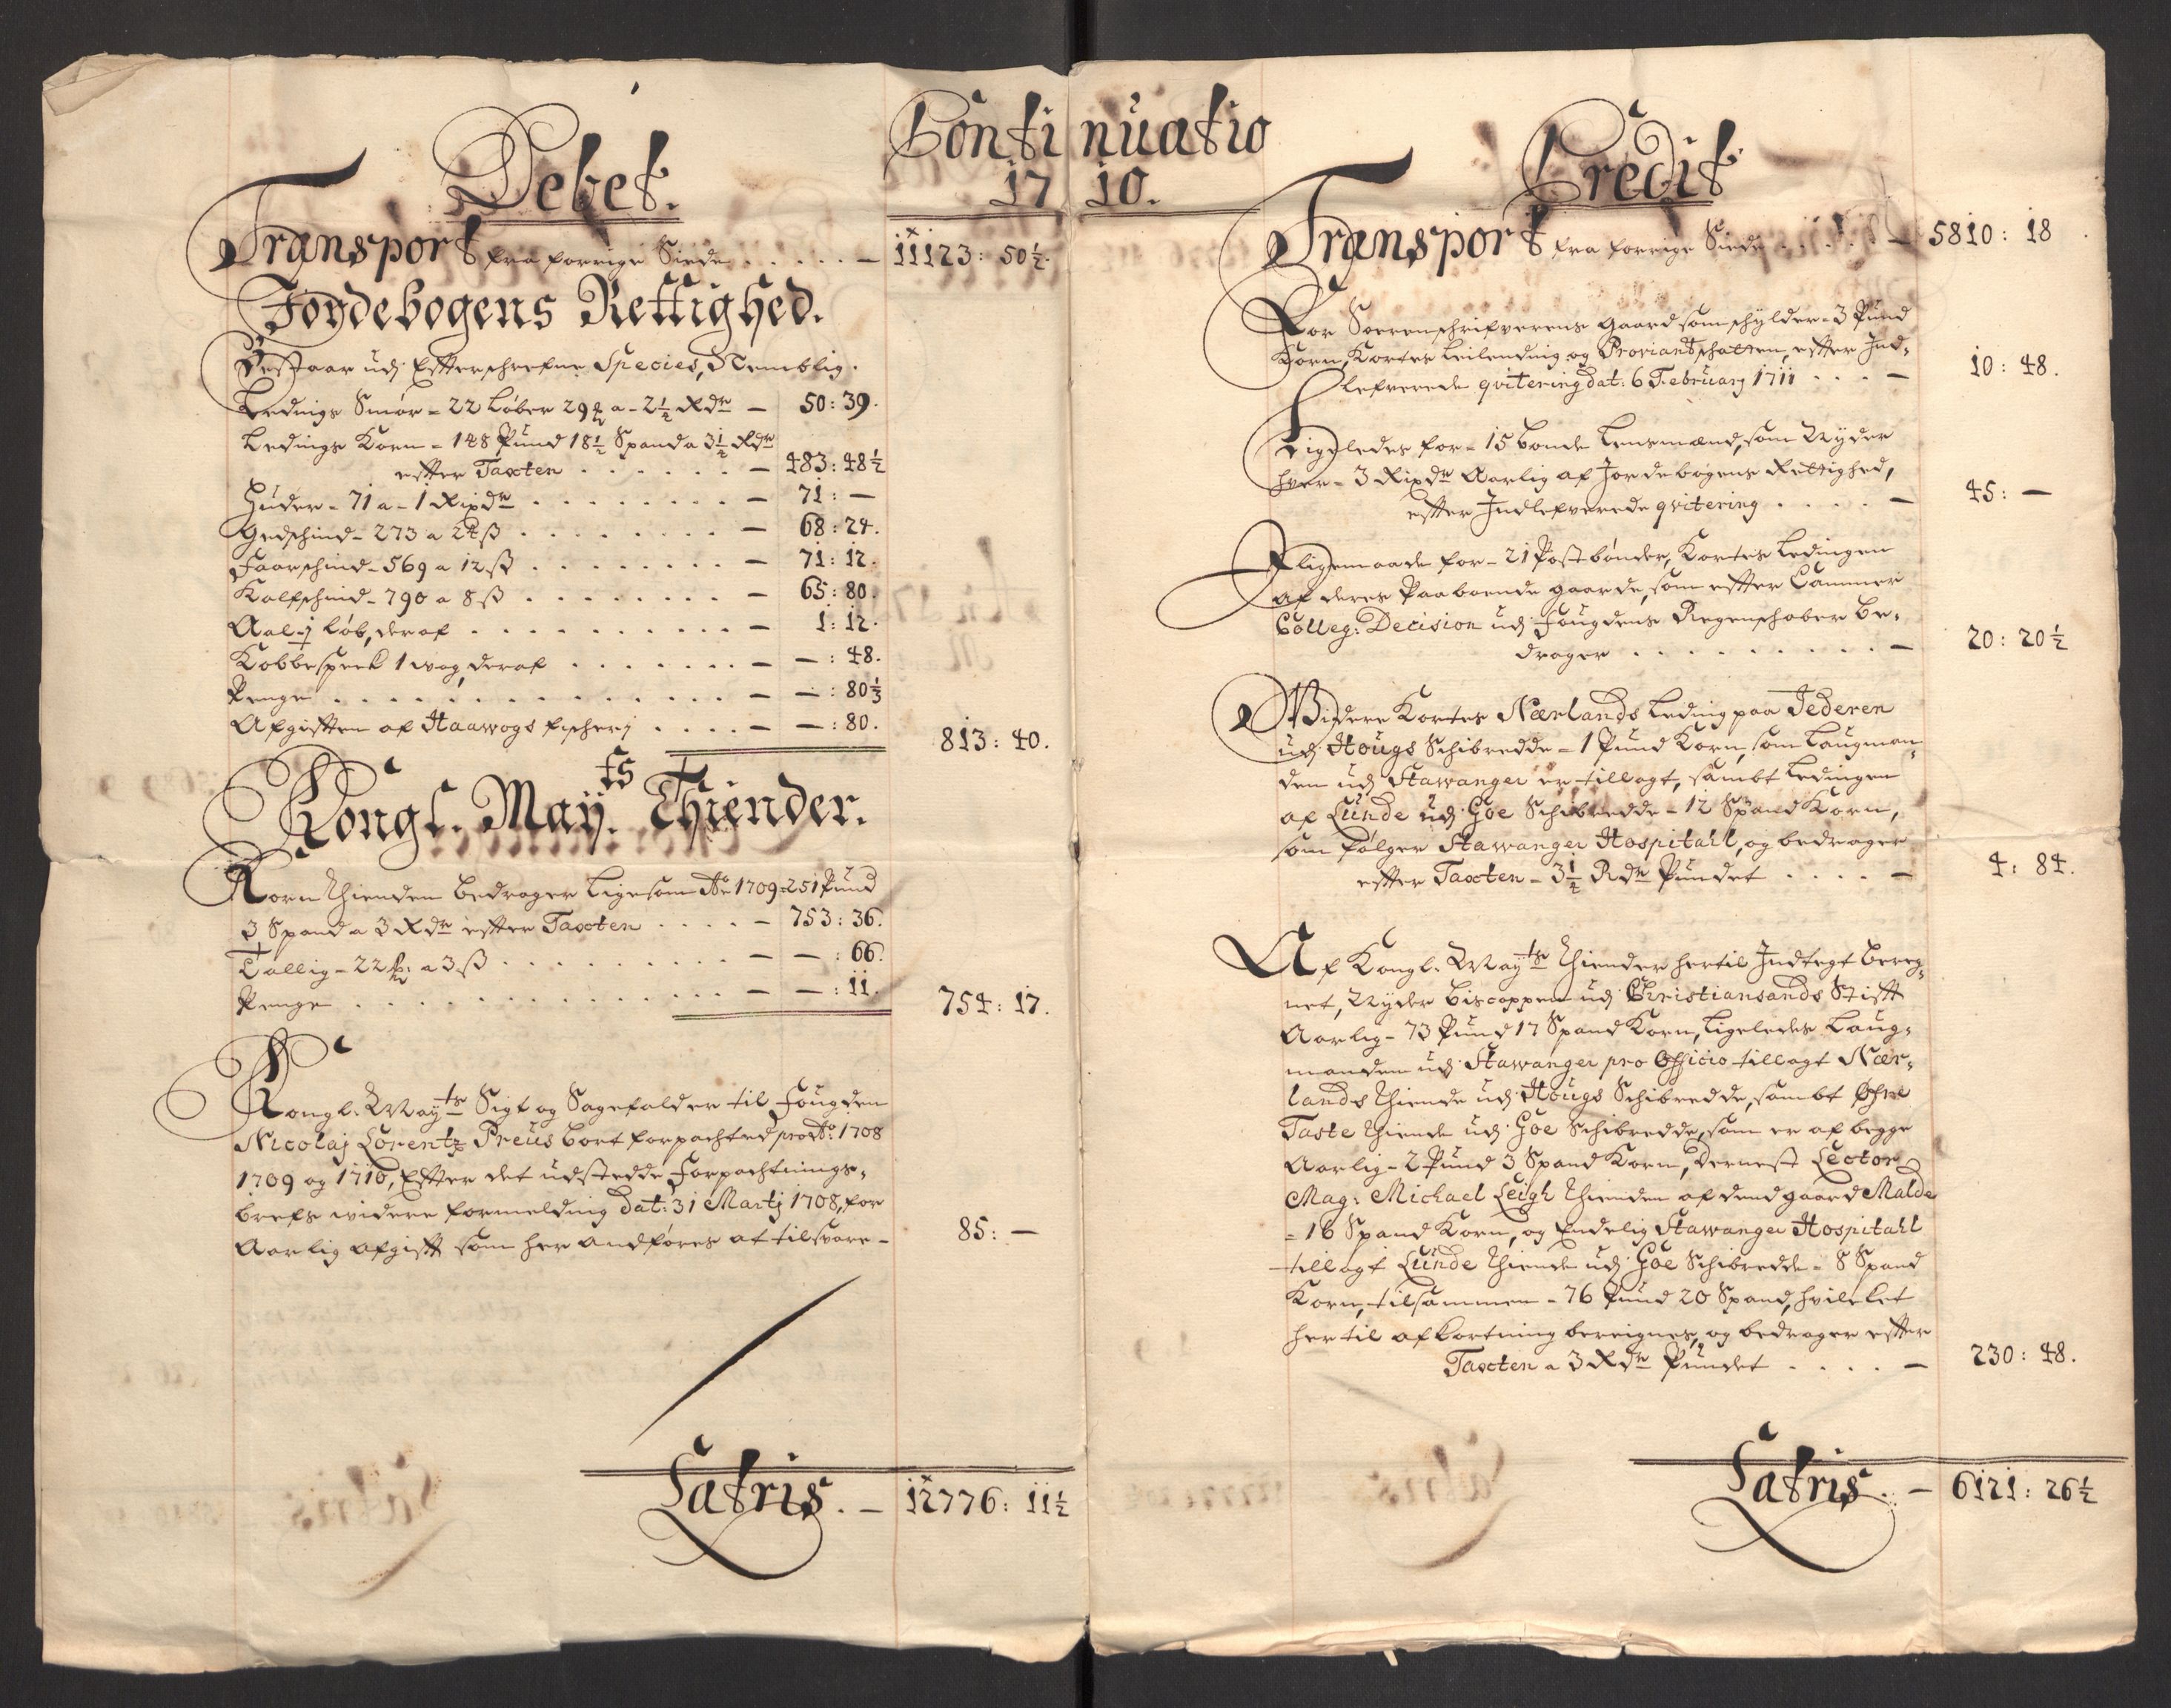 Continuatio
1710.
Debet.
Transport fra forrige Siide . . . . . — 11123: 50½.
Jordebogens Rettighed.
Bestaar udj Effterschrefne Species, Nemblig.
Ledings Smör - 22 Löber 29 a - 2½ Rdr — 50: 39.
Ledings Korn - 148 Pund 18½ Spand a 3½ Rdr
effter Taxten . . . . . . — 483: 48½
Huder - 71 a - 1 Rixdr . . . . . . . — 71: —
Gedschind - 273 a 24 ß . . . . . . . — 68: 24.
Faarschind - 569 a 12 ß . . . . . . . — 71: 12.
Kalfschind - 790 a 8 ß . . . . . . . — 65: 80.
Aal - j Löb, deraf . . . . . . . . . — 1: 12.
Kobbespeck 1 wog, deraf . . . . . . — —: 48.
Penge . . . . . . . . . . . . — —: 80⅓
Afgifften af Haawogs fischerj . . . . — —: 80.
813: 40.
Kongl. Mayts Thiender.
Korn Thienden bedrager Ligesom Ao 1709 - 251 Pund
3 Spand a 3 Rdr effter Taxten . . . . — 753: 36.
Tallig - 22 a 3 ß . . . . . . . . . — —: 66.
Penge . . . . . . . . . . . . — —: 11.
754: 17.
Kongl. Mayts Sigt og Sagefald er til Fougden
Nicolaj Lorentz Preus bort forpachted pro Ao 1708
1709 og 1710, Effter det udstedde Forpachtnings-
brefs widere formelding dat: 31 Martj 1708, for
Aarlig afgifft som her andföres at tilsvare -
85: —
Latris. — 12776: 11½
Credit
Transport fra forrige Siide . . . . . — 5810: 18
For Sorenschrifverens gaard som schylder - 3 Pund
Korn, Kortes Leilending og Proviantschatten, effter Ind-
lefverede qvitering dat: 6 Februarj 1711 . . . —
10: 48.
Ligeledes for - 15 bonde Lensmænd, som Nyder
hver - 3 Rixdr Aarlig af Jordebogens Rettighed,
effter Indlefverede qvitering . . . . —
45: —
Iligemaade for - 21 Postbönder, Kortes Ledingen
af deres Paaboende gaarde, som effter Cammer
Colleg: Decision udj Fougdens Regenschaber be-
drager . . . . . . . . . —
20: 20½
Widere Kortes Nærlands Leding paa Jederen
udj Hougs Schibredde - 1 Pund Korn, som Laugman-
den udj Stawanger er tillagt, sambt Ledingen
af Lunde udj Goe Schibredde - 12 Spand Korn,
som fölger Stawanger Hospitall, og bedrager
effter Taxten - 3½ Rdr Pundet . . . . —
4: 84.
Af Kongl. Mayts Thiender hertil Indtegt bereg-
net, Nyder Biscoppen udj Christiansands Stifft
Aarlig - 73 Pund 17 Spand Korn, Ligeledes Laug-
manden udj Stawanger pro Officio tillagt Nær-
lands Thiende udj Hougs Schibredde, sambt Øfre
Taste Thiende udj Goe Schibredde, som er af begge
Aarlig - 2 Pund 3 Spand Korn, Dernest Lector
Mag: Michael Leigh Thienden af dend gaard Malde
- 16 Spand Korn, og Endelig Stawanger Hospitall
tillagt Lunde Thiende udj Goe Schibredde - 8 Spand
Korn, tilsammen - 76 Pund 20 Spand, hvilcket
hertil afkortning bereignes, og bedrager effter
Taxten a 3 Rdr Pundet . . . . —
230: 48.
Latris. — 6121: 26½